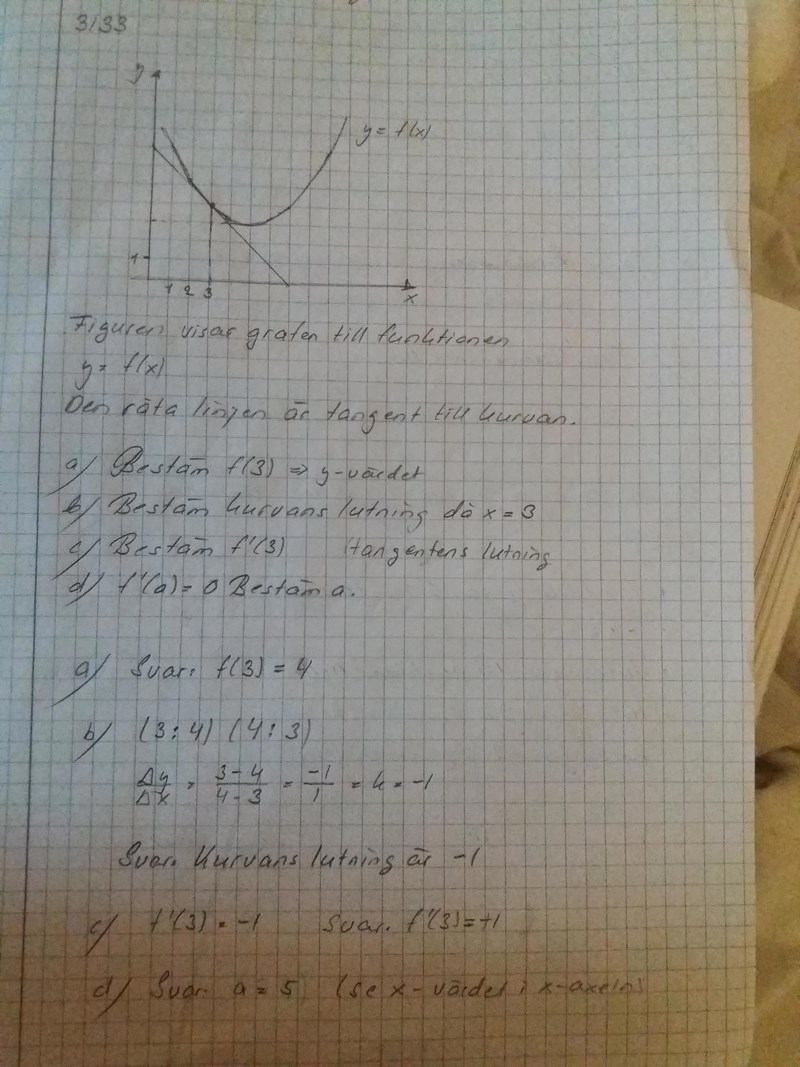 3133
y
y = f(x)
1
1 2 3
x
Figuren visar grafen till funktionen
y = f(x)
Den räta linjen är tangent till kurvan.
a) Bestäm f(3) => y-värdet
b) Bestäm kurvans lutning då x = 3
c) Bestäm f'(3) (tangentens lutning
d) f'(a) = 0 Bestäm a.
a) Svar: f(3) = 4
b) (3:4) (4:3)
Δy/Δx = 3-4/4-3 = -1/1 = k = -1
Svar. Kurvans lutning är -1
c) f'(3) = -1 Svar. f'(3) = -1
d) Svar. a = 5 (se x-värdet i x-axeln)